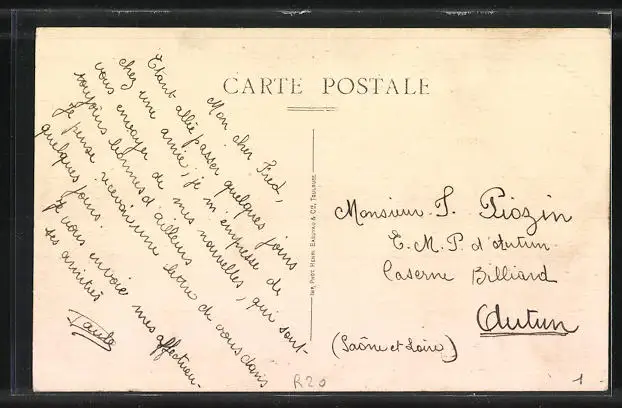 CARTE POSTALE
Mon cher Fred,
Etant allée passer quelques jours
chez une amie, je m'empresse de
vous envoyer de mes nouvelles, qui sont
toujours bonnes d'ailleurs
Je pense recevoir une lettre de vous dans
quelques jours.
Je vous envoie mes affectueu-
ses amitiés
Paule
IMP. PHOT. HENRI & Cie, TOULOUSE
Monsieur Piozin
E. M. P. d'Autun
Caserne Billiard
Autun
(Saône et Loire)
R20
1